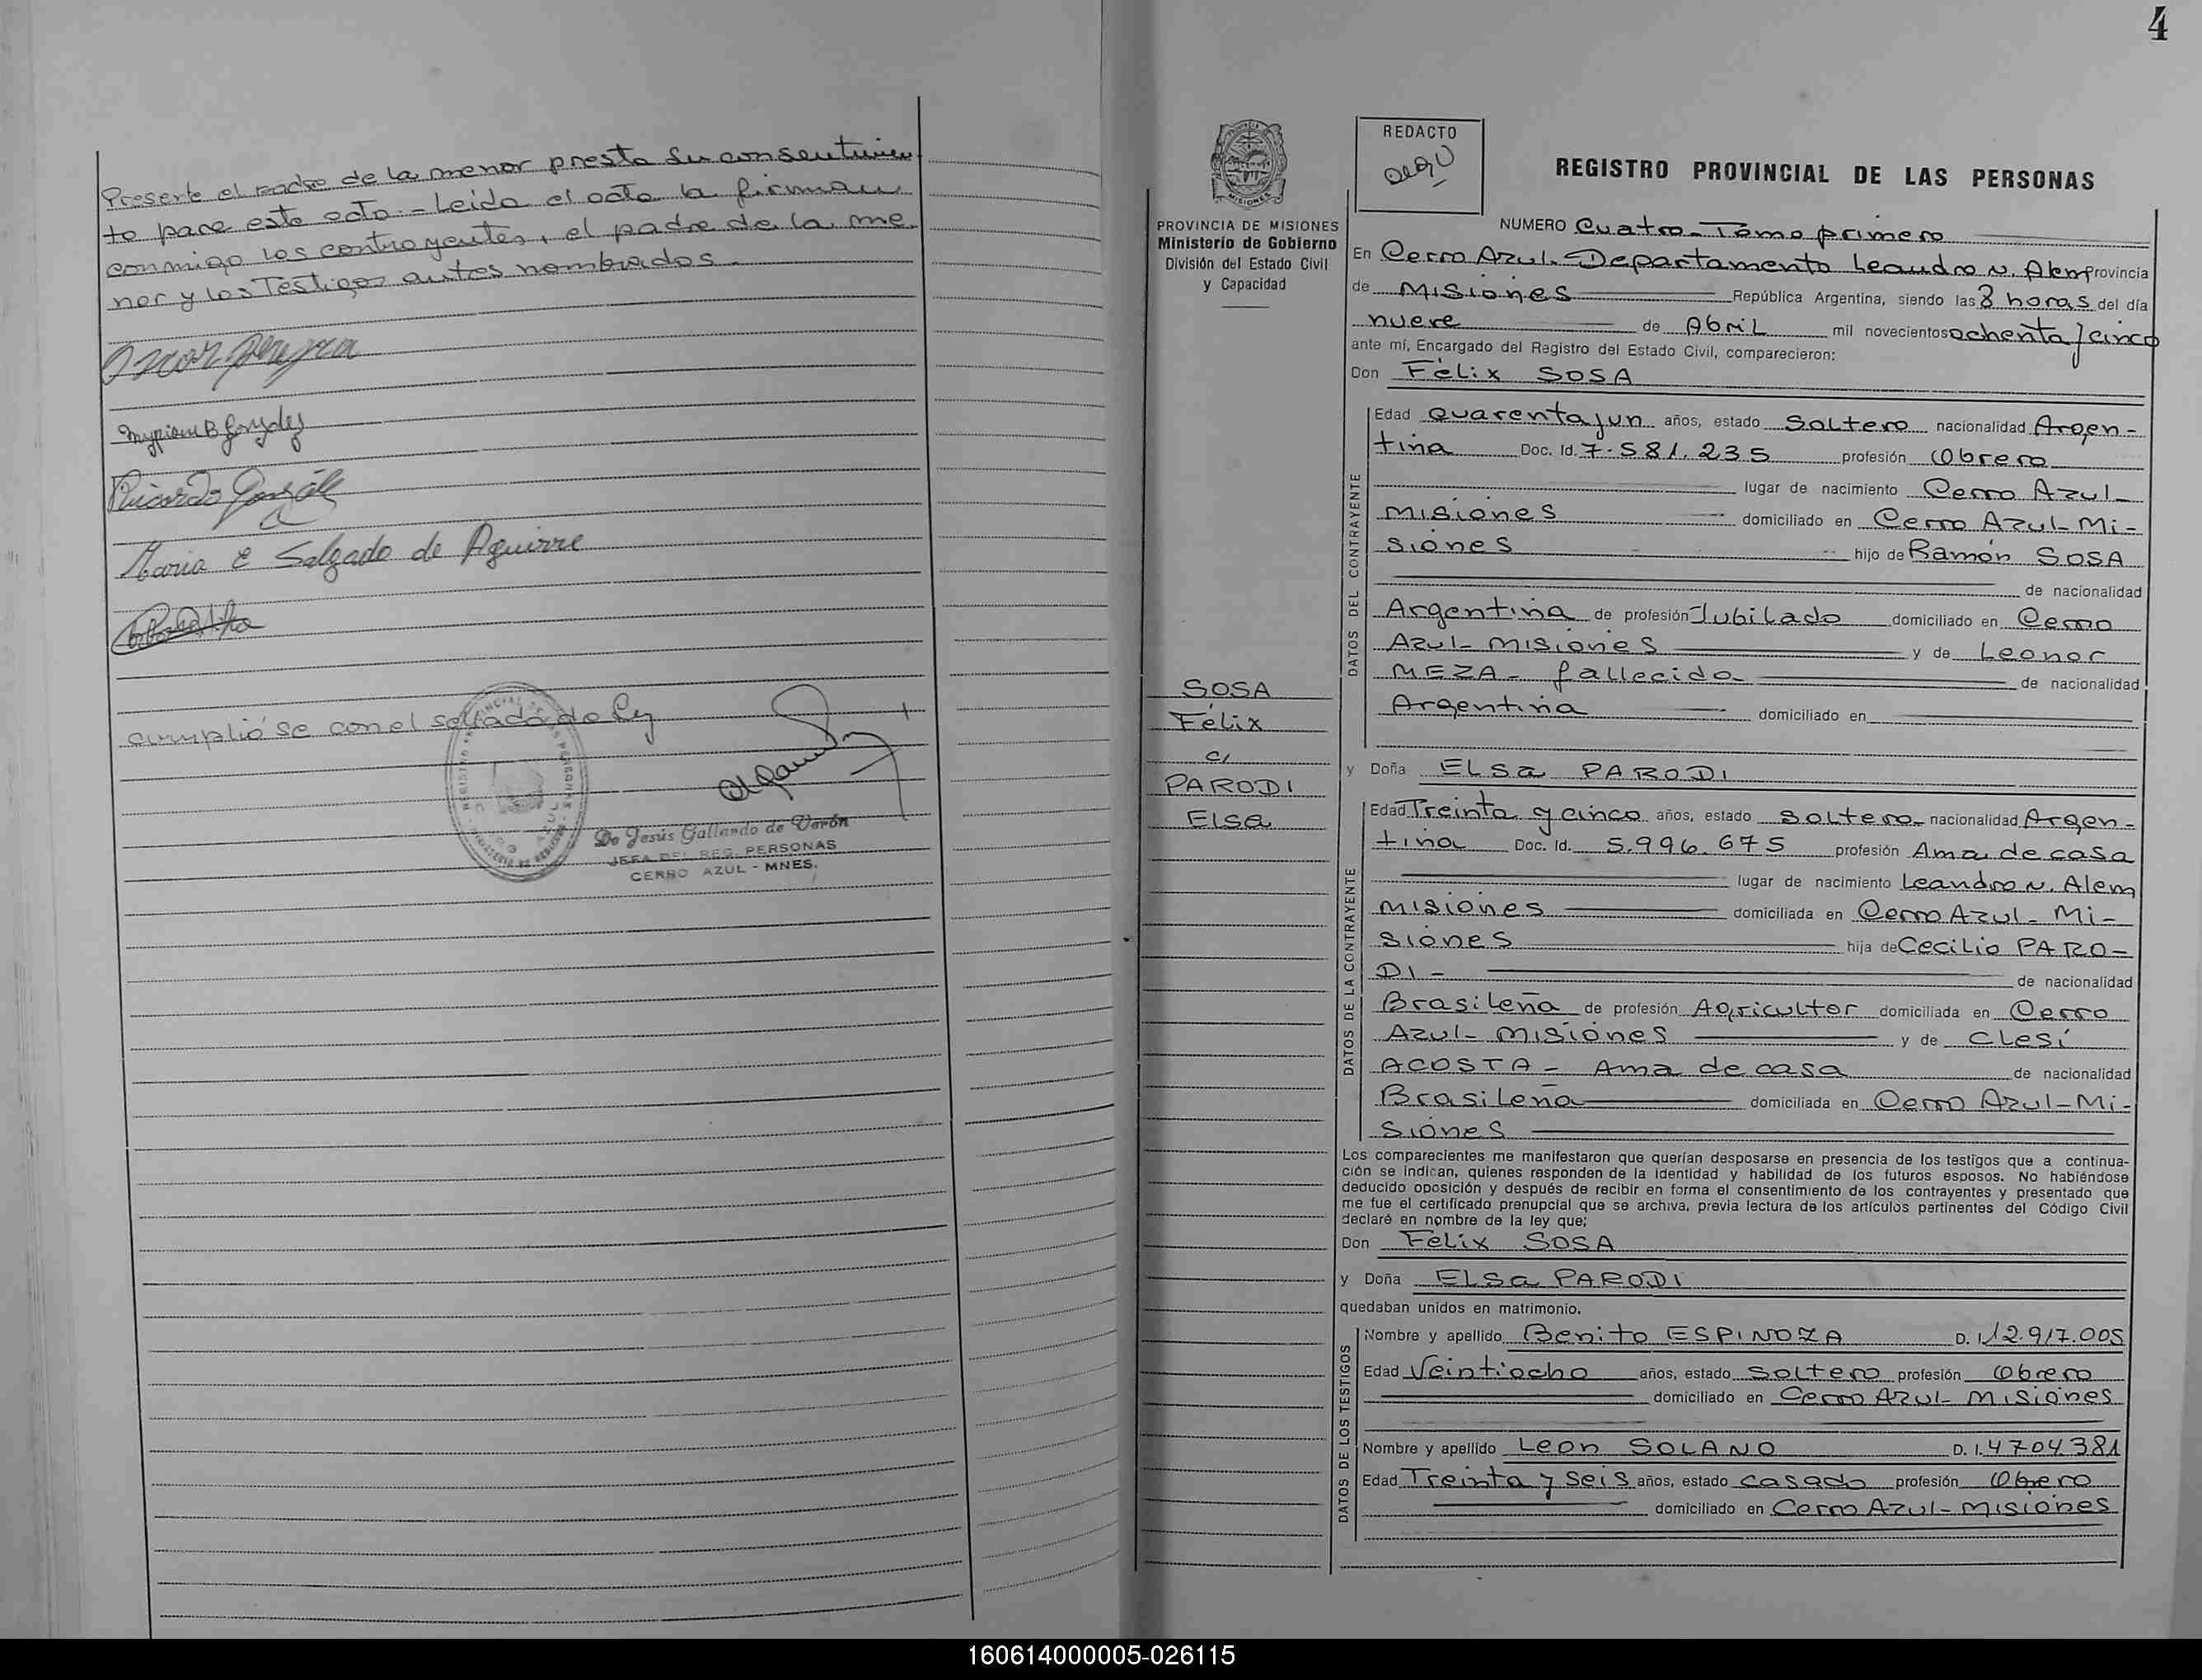 Presente el padre de la menor presta su consentimien
to para este acto.- Leida el acta la firman
conmigo los contrayentes, el padre de la me
nor y los Testigos antes nombrados
Myriam B González
Ricardo González
Maria E Salgado de Aguirre
cumplióse con el sellado de ley
De Jesús Gallardo de Verón
JEFA DEL REG. PERSONAS
CERRO AZUL - MNES.
4
PROVINCIA DE MISIONES
Ministerio de Gobierno
División del Estado Civil
y Capacidad
SOSA
Félix
c/
PARODI
Elsa
REDACTO
REGISTRO PROVINCIAL DE LAS PERSONAS
NUMERO Cuatro - Tomo primero
En Cerro Azul. Departamento Leandro N. Alem Provincia
de Misiones República Argentina, siendo las 8 horas del día
nueve de Abril mil novecientos ochenta y cinco
ante mí, Encargado del Registro del Estado Civil, comparecieron:
Don Félix SOSA
DATOS DEL CONTRAYENTE
Edad Cuarenta y un años, estado Soltero nacionalidad Argen-
tina Doc. Id. 7.581.235 profesión Obrero
lugar de nacimiento Cerro Azul-
Misiones domiciliado en Cerro Azul-Mi-
siones hijo de Ramón SOSA
de nacionalidad
Argentina de profesión Jubilado domiciliado en Cerro
Azul- Misiones y de Leonor
MEZA- fallecida- de nacionalidad
Argentina domiciliado en
y Doña ELSA PARODI
DATOS DE LA CONTRAYENTE
Edad Treinta y cinco años, estado soltera- nacionalidad Argen-
tina Doc. Id. 5.996.675 profesión Ama de casa
lugar de nacimiento Leandro N. Alem
Misiones domiciliada en Cerro Azul- Mi-
siones hija de Cecilio PARO-
DI- de nacionalidad
Brasileña de profesión Agricultor domiciliada en Cerro
Azul- Misiones y de Clesí
ACOSTA- Ama de casa de nacionalidad
Brasileña domiciliada en Cerro Azul-Mi-
siones
Los comparecientes me manifestaron que querían desposarse en presencia de los testigos que a continua-
ción se indican, quienes responden de la identidad y habilidad de los futuros esposos. No habiéndose
deducido oposición y después de recibir en forma el consentimiento de los contrayentes y presentado que
me fue el certificado prenupcial que se archiva, previa lectura de los artículos pertinentes del Código Civil
declaré en nombre de la ley que;
Don Félix SOSA
y Doña ELSA PARODI
quedaban unidos en matrimonio.
DATOS DE LOS TESTIGOS
Nombre y apellido Benito ESPINOZA D. I. 12.917.005
Edad Veintiocho años, estado soltero profesión Obrero
domiciliado en Cerro Azul- Misiones
Nombre y apellido Leon SOLANO D. I. 4704381
Edad Treinta y seis años, estado casado profesión Obrero
domiciliado en Cerro Azul- Misiones
160614000005-026115